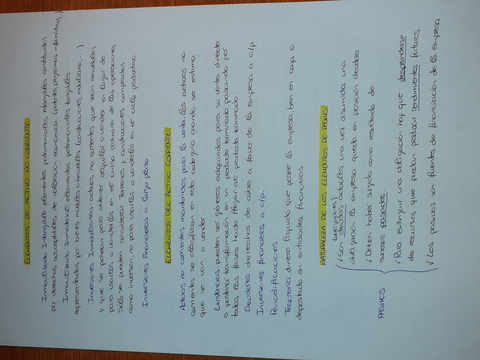 ELEMENTOS DE ACTIVO NO CORRIENTE
Inmovilizado Intangible: elementos patrimoniales intangibles constituidos
por derechos susceptibles de valoración económica (patentes, programas informáticos)
Inmovilizado Inmaterial: elementos patrimoniales tangibles
representados por bienes muebles o inmuebles (construcciones, mobiliario, ...)
Inversiones Inmobiliarias: activos no corrientes que sean inmuebles
y que se posean para obtener alquiler o vender en lugar de
para usarlos o venderlos en el curso ordinario de las operaciones.
Solo se pueden considerar terrenos y construcciones compradas
como inversión, no para usarlos o venderlos en el ciclo productivo
Inversiones Financieras a largo plazo
ELEMENTOS DEL ACTIVO CORRIENTE
Activos no corrientes mantenidos para la venta: los activos no
corrientes se clasifican en esta categoría cuando se estima
que se van a vender
Existencias: pueden ser géneros adquiridos para su venta directa
o posterior transformación en producto terminado pasando por
todas las fases hasta llegar al producto terminado
Deudores: derechos de cobro a favor de la empresa a c/p
Inversiones financieras a c/p.
Periodificaciones.
Tesorería: dinero líquido que posee la empresa bien en caja o
depositado en entidades financieras
NATURALEZA DE LOS ELEMENTOS DE PASIVO
PASIVOS
Son deudas actuales una vez asumida una
obligación, la empresa queda en posición deudora
Deben haber surgido como resultado de
sucesos pasados.
Para extinguir una obligación hay que desprenderse
de recursos que puedan producir rendimientos futuros.
Los pasivos son fuentes de financiación de la empresa